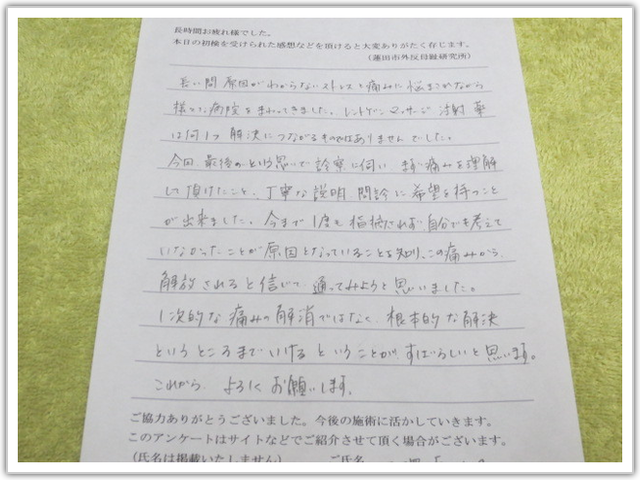 長時間お疲れ様でした。
本日の初検を受けられた感想などを頂けると大変ありがたく存じます。
(蓮田市外反母趾研究所)
長い間 原因がわからないストレスと痛みに悩まされながら
様々な病院をまわってきました。レントゲン マッサージ 注射 薬
は何1つ 解決につながるものではありませんでした。
今回 最後の という思いで 診察に伺い まず痛みを理解
して頂けたこと、丁寧な説明、問診に希望を持つこと
が出来ました。今まで1度も指摘されず自分でも考えて
いなかったことが原因となっていることを知り、この痛みから
解放されると信じて、通ってみようと思いました。
1次的な痛みの解消ではなく、根本的な解決
というところまでいけるということが、すばらしいと思います。
これから、よろしくお願いします。
ご協力ありがとうございました。今後の施術に活かしていきます。
このアンケートはサイトなどでご紹介させて頂く場合がございます。
(氏名は掲載いたしません) ご氏名